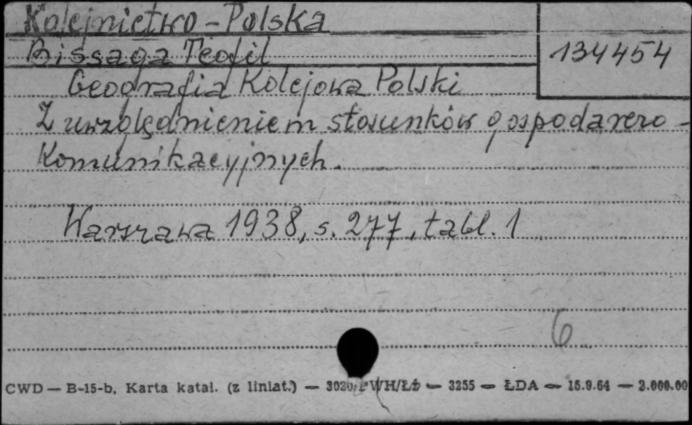 Kolejnictwo - Polska
Bissaga Teofil
134454
Geografia Kolejowa Polski
Z uwzględnieniem stosunków gospodarczo -
Komunikacyjnych.
Warszawa 1938, s. 277, tabl. 1
6
CWD — B-15-b, Karta katal. (z liniat.) — 3020/PWH/Łź — 3255 — ŁDA — 15.9.64 — 3.000.00